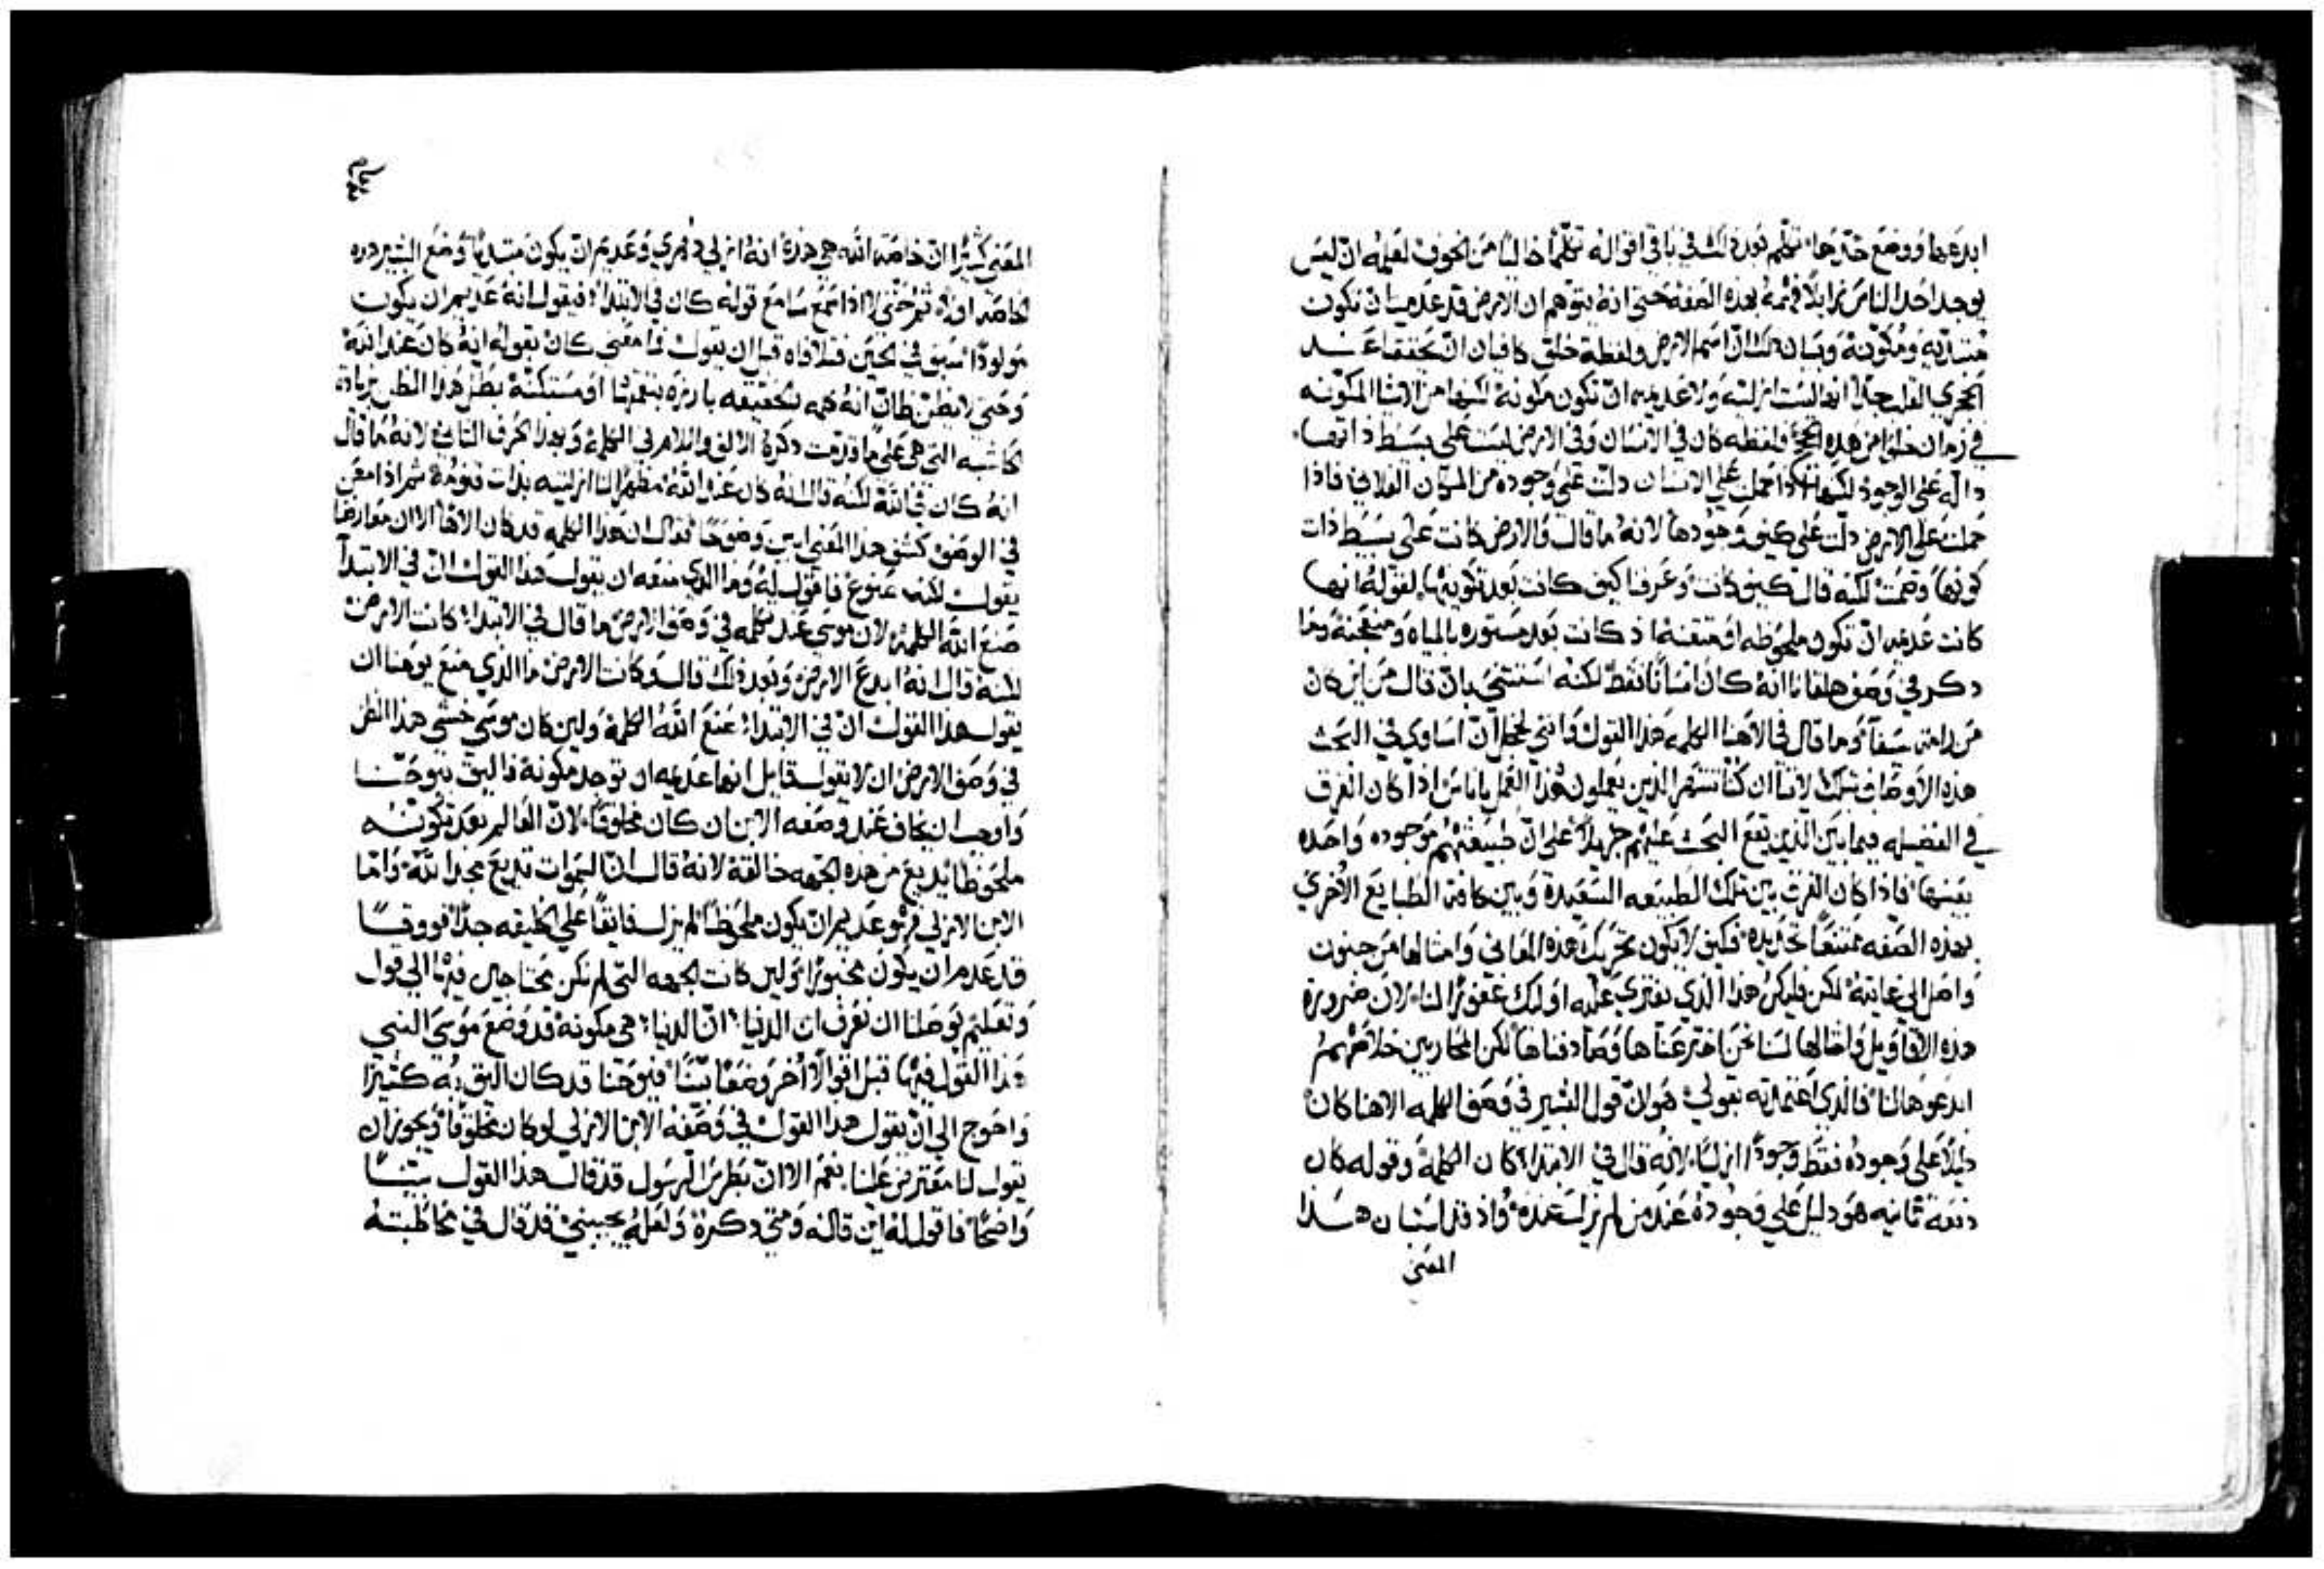 ابدعها ووضع حدّها تكلم بعد ذلك في باقي اقواله تكلمًا خاليًا من الخوف لعلمه ان ليس
يوجد احد الناس زايلاً فهمه بهذه الصفه حتى انه يتوهم ان الارض قد عدمت ان تكون
مبتديه ومكونة وبيان ذلك ان اسم الارض ولفظة خلق كافيان ان يحققا عند
في زمان خلوًا من هذه ولفظه كان في الانسان وفي الارض ليست على بسيط ذاتها
دالّه على الوجود لكنها اذا حملت على الانسان دلّت على وجوده من المكان الفلاني فاذا
حملت على الارض دلّت على كيف وجودها لانه ما قال والارض كانت على بسيط ذات
كونها وصمت لكنه قال كيف كانت وعرفنا كيف كانت بعد تكوينها لقوله انها
كانت عديمه ان تكون ملحوظه او متقنة اذ كانت بعد مستوره بالمياه وممتزجة وما
ذكر في وصف هلقانا انه كان انسانًا فقط لكنه استثنى بان قال من اين كان
من رامة سيفا وما قال في الاهنا الكلمه هذا القول وانني لخجل ان اساوي في البحث
هذه الاوصاف بتلك لاننا ان كنا ننتهر الذين يعملون هذا العمل باناس اذا كان الفرق
في الفضيله فيما بين الذين يقع البحث عليهم جزيلاً على انّ طبيعتهم موجوده واحده
بعينها فاذا كان الفرق بين تلك الطبيعه السعيدة وبين كافة الطبايع الاخرى
بهذه الصفه ممتنعًا تحديده فكيف لا يكون تحريك هذه المعاني وامثالها من جنون
واصل الى غايته لكن فليكن هذا الذي يفترى عليه اولئك غفورًا لنا لان ضرورة
هذه الاقاويل وامثالها لسنا نحن اخترعناها وصادفناها لكن المحاربين خلاصهم
ابدعوها لنا فالذي اعتمدته بقولي هو ان قول البشير في وصف الكلمه الاهنا كان
دليلاً على وجوده فقط وجودًا ازليًا لانه قال في الابتداء كان الكلمة وقوله كان
دفعة ثانيه هو دليل على وجوده عند من لم يزل عنده واذ قد استبان هذا
المعنى
المعنى كثيرًا ان خاصة الله هي هذه انه ازلي دهري وعديم ان يكون مبتديًا وضع البشير هذه
الخاصه اولاً ثم حتى لا اذا سمع سامع قوله كان في الابتداء فيقول انه عديم ان يكون
مولودًا سبق في الحين فتلافاه قبل ان يقول فما معنى كان بقوله انه كان عند الله
وحتى لا يظن ظانّ انه كلمه بتحقيقه بارزه بنغمتها او مستكنّة بطل هذا الظن بزيادة
الحاشيه التي هي على ما قدمت ذكره الالف واللام في الكلمة وبهذا الحرف الثاني لانه ما قال
انه كان في الله لكنه قال انه كان عند الله مظهرًا لنا ازليته بذات قنومه ثم اذ امعن
في الوصف كشف هذا المعنى ابين وضوحًا فقال ان هذا الكلمه قد كان الاهًا الا ان معارضًا
يقول لكنه مصنوع فاقول له وما الذي منعه ان يقول هذا القول ان في الابتدا
صنع الله الكلمة لان موسى عند تكلمه في وصف الارض ما قال في الابتداء كانت الارض
لكنه قال انه ابدع الارض وبعد ذلك قال وكانت الارض ما الذي منع يوحنا ان
يقول هذا القول ان في الابتداء صنع الله الكلمة ولين كان موسى خشي هذا الظن
في وصف الارض ان لا يقول قايل انها عديمه ان توجد مكونة فاليق بيوحنا
واوجب ان يخاف عند وصفه الابن ان كان مخلوقًا لان العالم بعد تكونه
ملحوظًا يذيع من هذه الجهه خالقه لانه قال انّ السموات تذيع مجد الله وامّا
الابن الازلي فهو عديم ان يكون ملحوظًا لم يزل فايقًا على الخليقه جدًا فووقًا
قد عدم ان يكون مخبورًا ولين كانت الجهه التي لم نكن محتاجين فيها الى قول
وتعليم يوصلنا ان نعرف ان الدنيا هي مكونة قد وضع موسى النبي
هذا القول فيها قبل اقوالاً اخر وضعًا بينًا فيوحنا قد كان اليق به كثيرًا
واحوج الى ان يقول هذا القول في وصفه الابن الازلي لو كان مخلوقًا ويجوز ان
يقول لنا معترض علينا نعم الا ان بطرس الرسول قد قال هذا القول بينًا
واضحًا فاقول له اين قاله ومتى ذكره ولعله يجيبني قد قال في مخاطبته